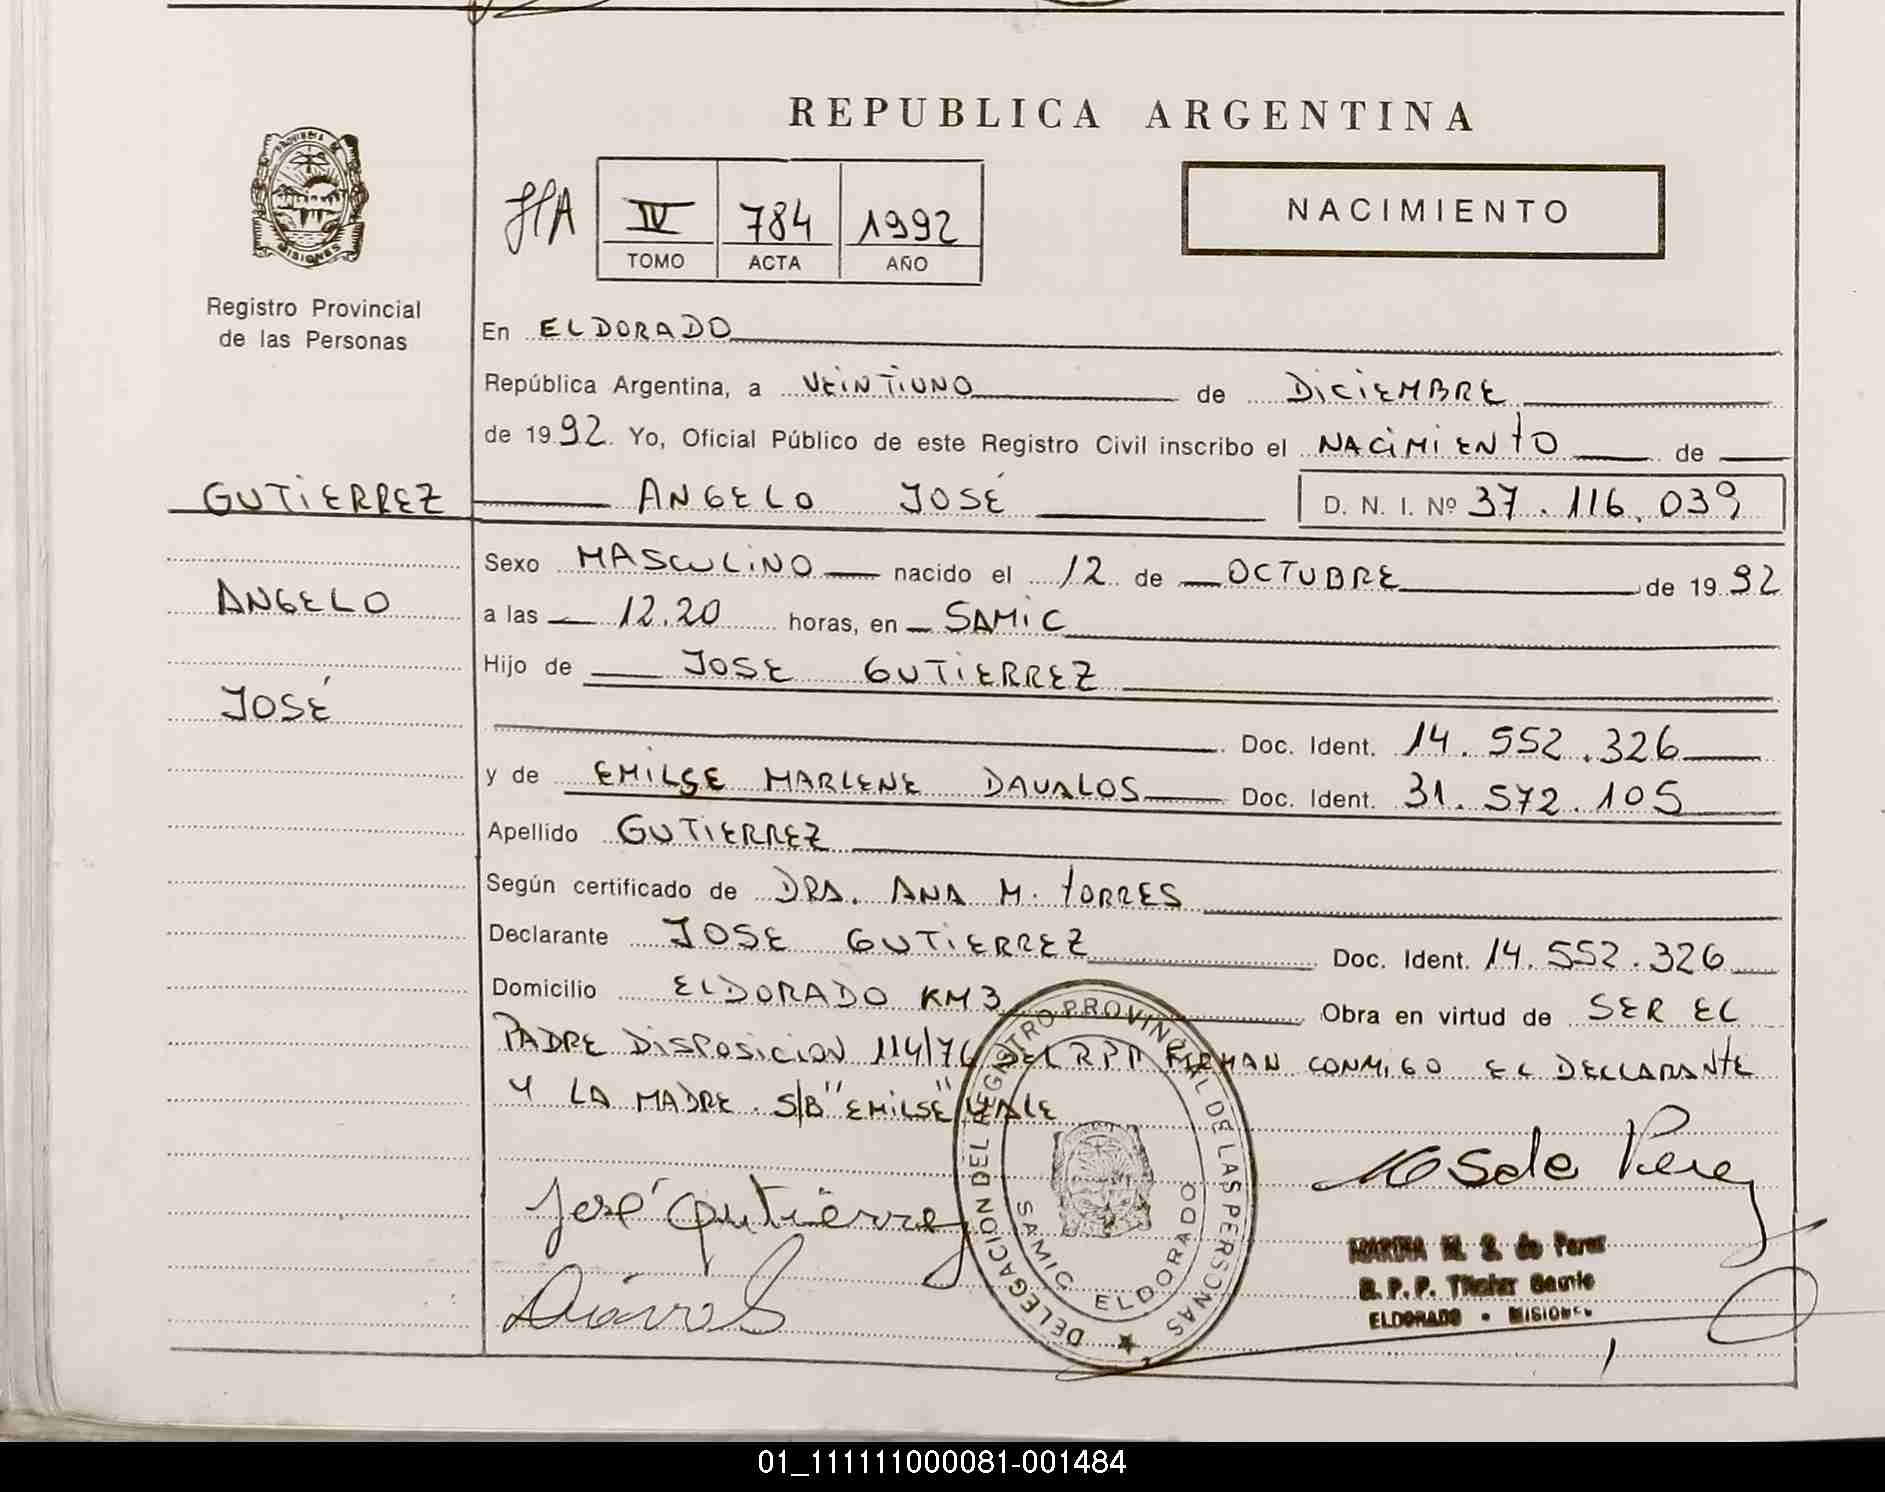 REPUBLICA ARGENTINA
PROVINCIA DE MISIONES
IV 784 1992
TOMO ACTA AÑO
NACIMIENTO
Registro Provincial
de las Personas
En ELDORADO
República Argentina, a VEINTIUNO de DICIEMBRE
de 1992. Yo, Oficial Público de este Registro Civil inscribo el NACIMIENTO de
GUTIERREZ ANGELO JOSÉ D. N. I. Nº 37.116.039
Sexo MASCULINO nacido el 12 de OCTUBRE de 1992
ANGELO
a las 12.20 horas, en SAMIC
Hijo de JOSE GUTIERREZ
JOSÉ
Doc. Ident. 14.552.326
y de EMILSE MARLENE DAVALOS Doc. Ident. 31.572.105
Apellido GUTIERREZ
Según certificado de DRA. ANA M. TORRES
Declarante JOSE GUTIERREZ Doc. Ident. 14.552.326
Domicilio ELDORADO KM3 Obra en virtud de SER EL
PADRE DISPOSICION 114/76 DEL RPP FIRMAN CONMIGO EL DECLARANTE
Y LA MADRE. S/B "EMILSE" VALE
José Gutiérrez
DELEGACION DEL REGISTRO PROVINCIAL DE LAS PERSONAS
SAMIC ELDORADO
MARINA M. S. de Perez
R. P. P. Titular
ELDORADO - MISIONES
01_111111000081-001484